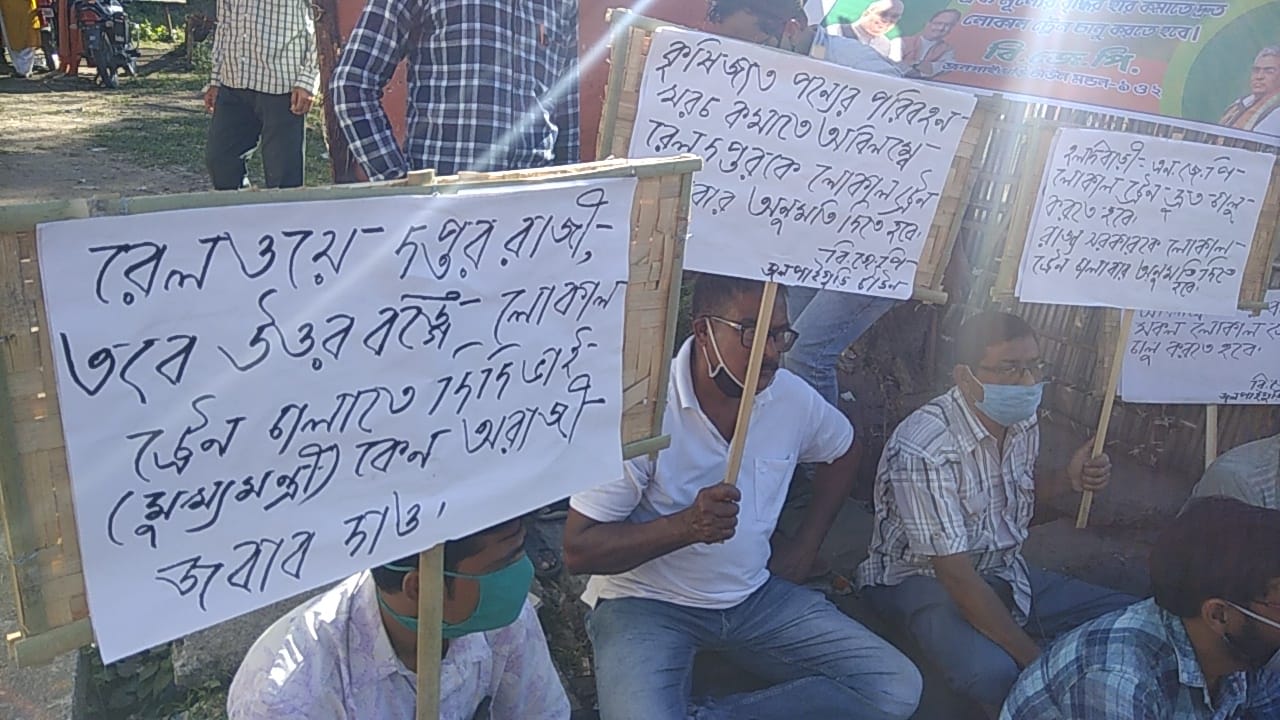 রেলওয়ে- দপ্তর রাজী,
তবে উত্তর বঙ্গে- লোকাল
ট্রেন চলাতে দিদিভাই-
(মুখ্যমন্ত্রী) কেন অরাজী
জবাব দাও,
কৃষিজাত পন্যের পরিবহন
খরচ কমাতে অবিলম্বে-
রেল দপ্তরকে লোকাল ট্রেন
বার অনুমতি দিতে হবে
বি.জে.পি
জলপাইগুড়ি টাউন
হলদিবাড়ী- এন.জে.পি-
লোকাল ট্রেন দ্রুত চালু-
করতে হবে
রাজ্য সরকারকে লোকাল-
ট্রেন চলাবার অনুমতি দিতে
হবে
সকল লোকাল
চালু করতে হবে
বি.
লোকাল ট্রেন চালু করতে হবে।
বি.জে.পি.
জলপাইগুড়ি টাউন মন্ডল-